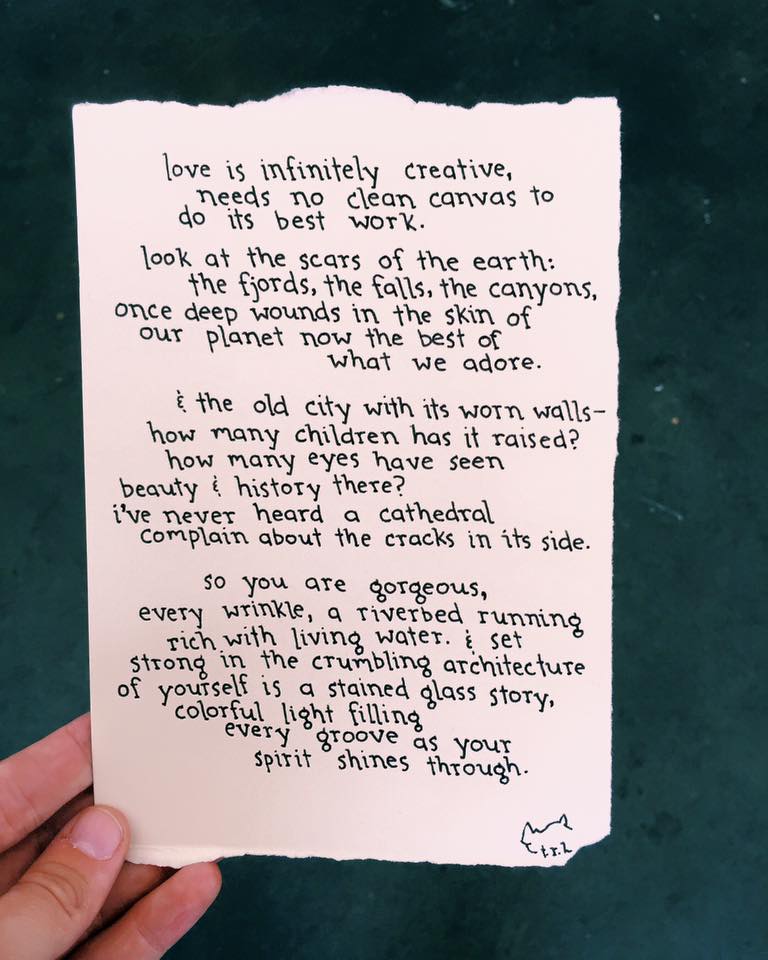 love is infinitely creative,
needs no clean canvas to
do its best work.
look at the scars of the earth:
the fjords, the falls, the canyons,
once deep wounds in the skin of
our planet now the best of
what we adore.
& the old city with its worn walls-
how many children has it raised?
how many eyes have seen
beauty & history there?
i've never heard a cathedral
complain about the cracks in its side.
so you are gorgeous,
every wrinkle, a riverbed running
rich with living water. & set
strong in the crumbling architecture
of yourself is a stained glass story,
colorful light filling
every groove as your
spirit shines through.